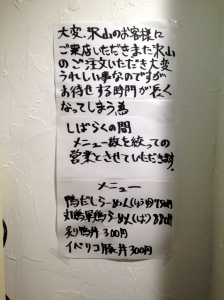 大変、沢山のお客様に
ご来店いただきまた沢山
のご注文いただき大変
うれしい事なのですが
お待せする時間が長く
なってしまう為
しばらくの間
メニュー数を絞っての
営業とさせていただきます。
メニュー
鴨だしらーめん(しょうゆ)750円
丸鴨らーめん(しお)
彩り鴨丼300円
イベリコ豚丼300円